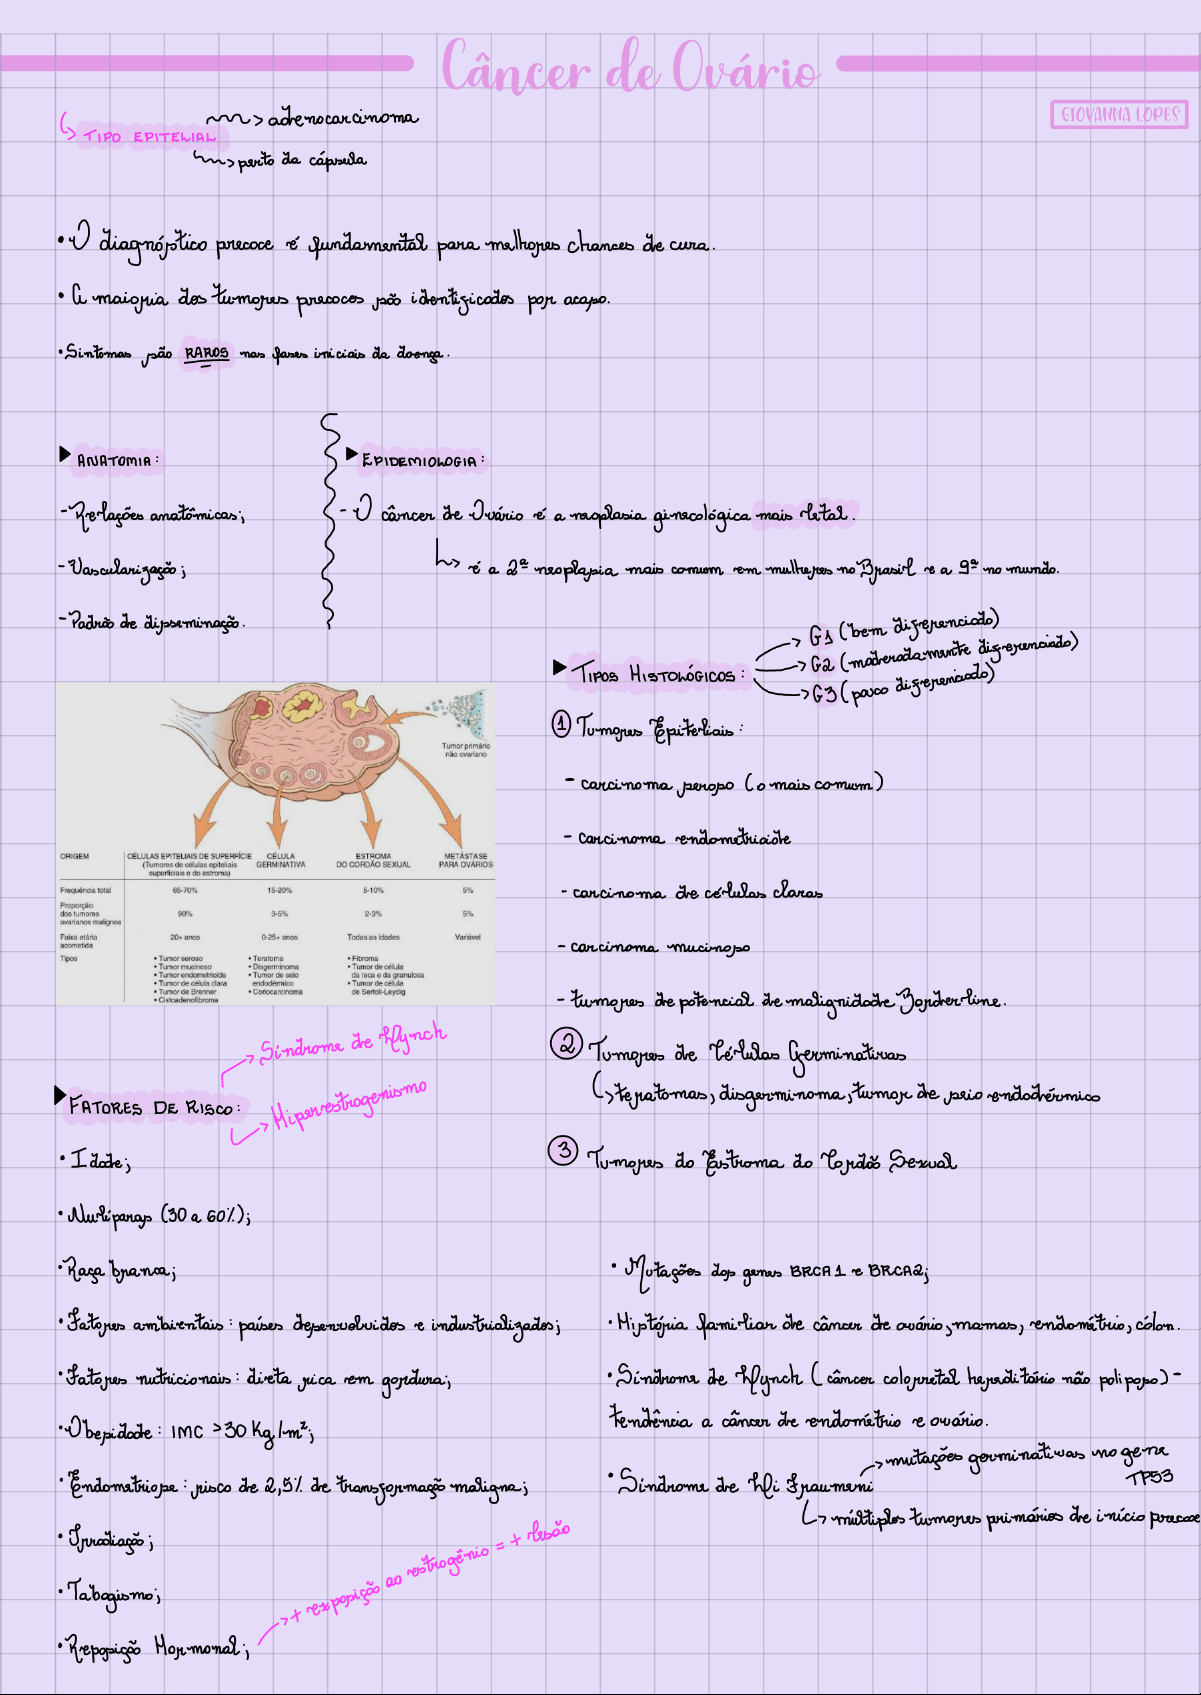 Câncer de Ovário
GIOVANNA LOPES
TIPO EPITELIAL
adenocarcinoma
perto da cápsula
• O diagnóstico precoce é fundamental para melhores chances de cura.
• A maioria dos tumores precoces são identificados por acaso.
• Sintomas são RAROS nas fases iniciais da doença.
ANATOMIA:
- Relações anatômicas;
- Vascularização;
- Padrão de disseminação.
EPIDEMIOLOGIA:
- O câncer de Ovário é a neoplasia ginecológica mais letal.
é a 2ª neoplasia mais comum em mulheres no Brasil e a 9ª no mundo.
TIPOS HISTOLÓGICOS:
G1 (bem diferenciado)
G2 (moderadamente diferenciado)
G3 (pouco diferenciado)
1 Tumores Epiteliais:
- carcinoma seroso (o mais comum)
- carcinoma endometrioide
- carcinoma de células claras
- carcinoma mucinoso
- tumores de potencial de malignidade Borderline.
2 Tumores de Células Germinativas
teratomas, disgerminoma, tumor de seio endodérmico
3 Tumores do Estroma do Cordão Sexual
Tumor primário
não ovariano
ORIGEM
CÉLULAS EPITELIAIS DE SUPERFÍCIE
(Tumores de células epiteliais
superficiais e do estroma)
CÉLULA
GERMINATIVA
ESTROMA
DO CORDÃO SEXUAL
METÁSTASE
PARA OVÁRIOS
Frequência total 65-70% 15-20% 5-10% 5%
Proporção
dos tumores
ovarianos malignos
90% 3-5% 2-3% 5%
Faixa etária
acometida
20+ anos 0-25+ anos Todas as idades Variável
Tipos
• Tumor seroso
• Tumor mucinoso
• Tumor endometrioide
• Tumor de célula clara
• Tumor de Brenner
• Cistoadenofibroma
• Teratoma
• Disgerminoma
• Tumor de seio
endodérmico
• Coriocarcinoma
• Fibroma
• Tumor de célula
da teca e da granulosa
• Tumor de célula
de Sertoli-Leydig
FATORES DE RISCO:
Síndrome de Lynch
Hiperestrogenismo
• Idade;
• Nulíparas (30 a 60%);
• Raça branca;
• Fatores ambientais: países desenvolvidos e industrializados;
• Fatores nutricionais: dieta rica em gordura;
• Obesidade: IMC > 30 Kg/m²;
• Endometriose: risco de 2,5% de transformação maligna;
• Irradiação;
• Tabagismo;
• Reposição Hormonal;
+ exposição ao estrogênio = + lesão
• Mutações dos genes BRCA1 e BRCA2;
• História familiar de câncer de ovário, mamas, endométrio, cólon.
• Síndrome de Lynch (câncer colorretal hereditário não poliposo) -
tendência a câncer de endométrio e ovário.
• Síndrome de Li Fraumeni
mutações germinativas no gene
TP53
múltiplos tumores primários de início precoce